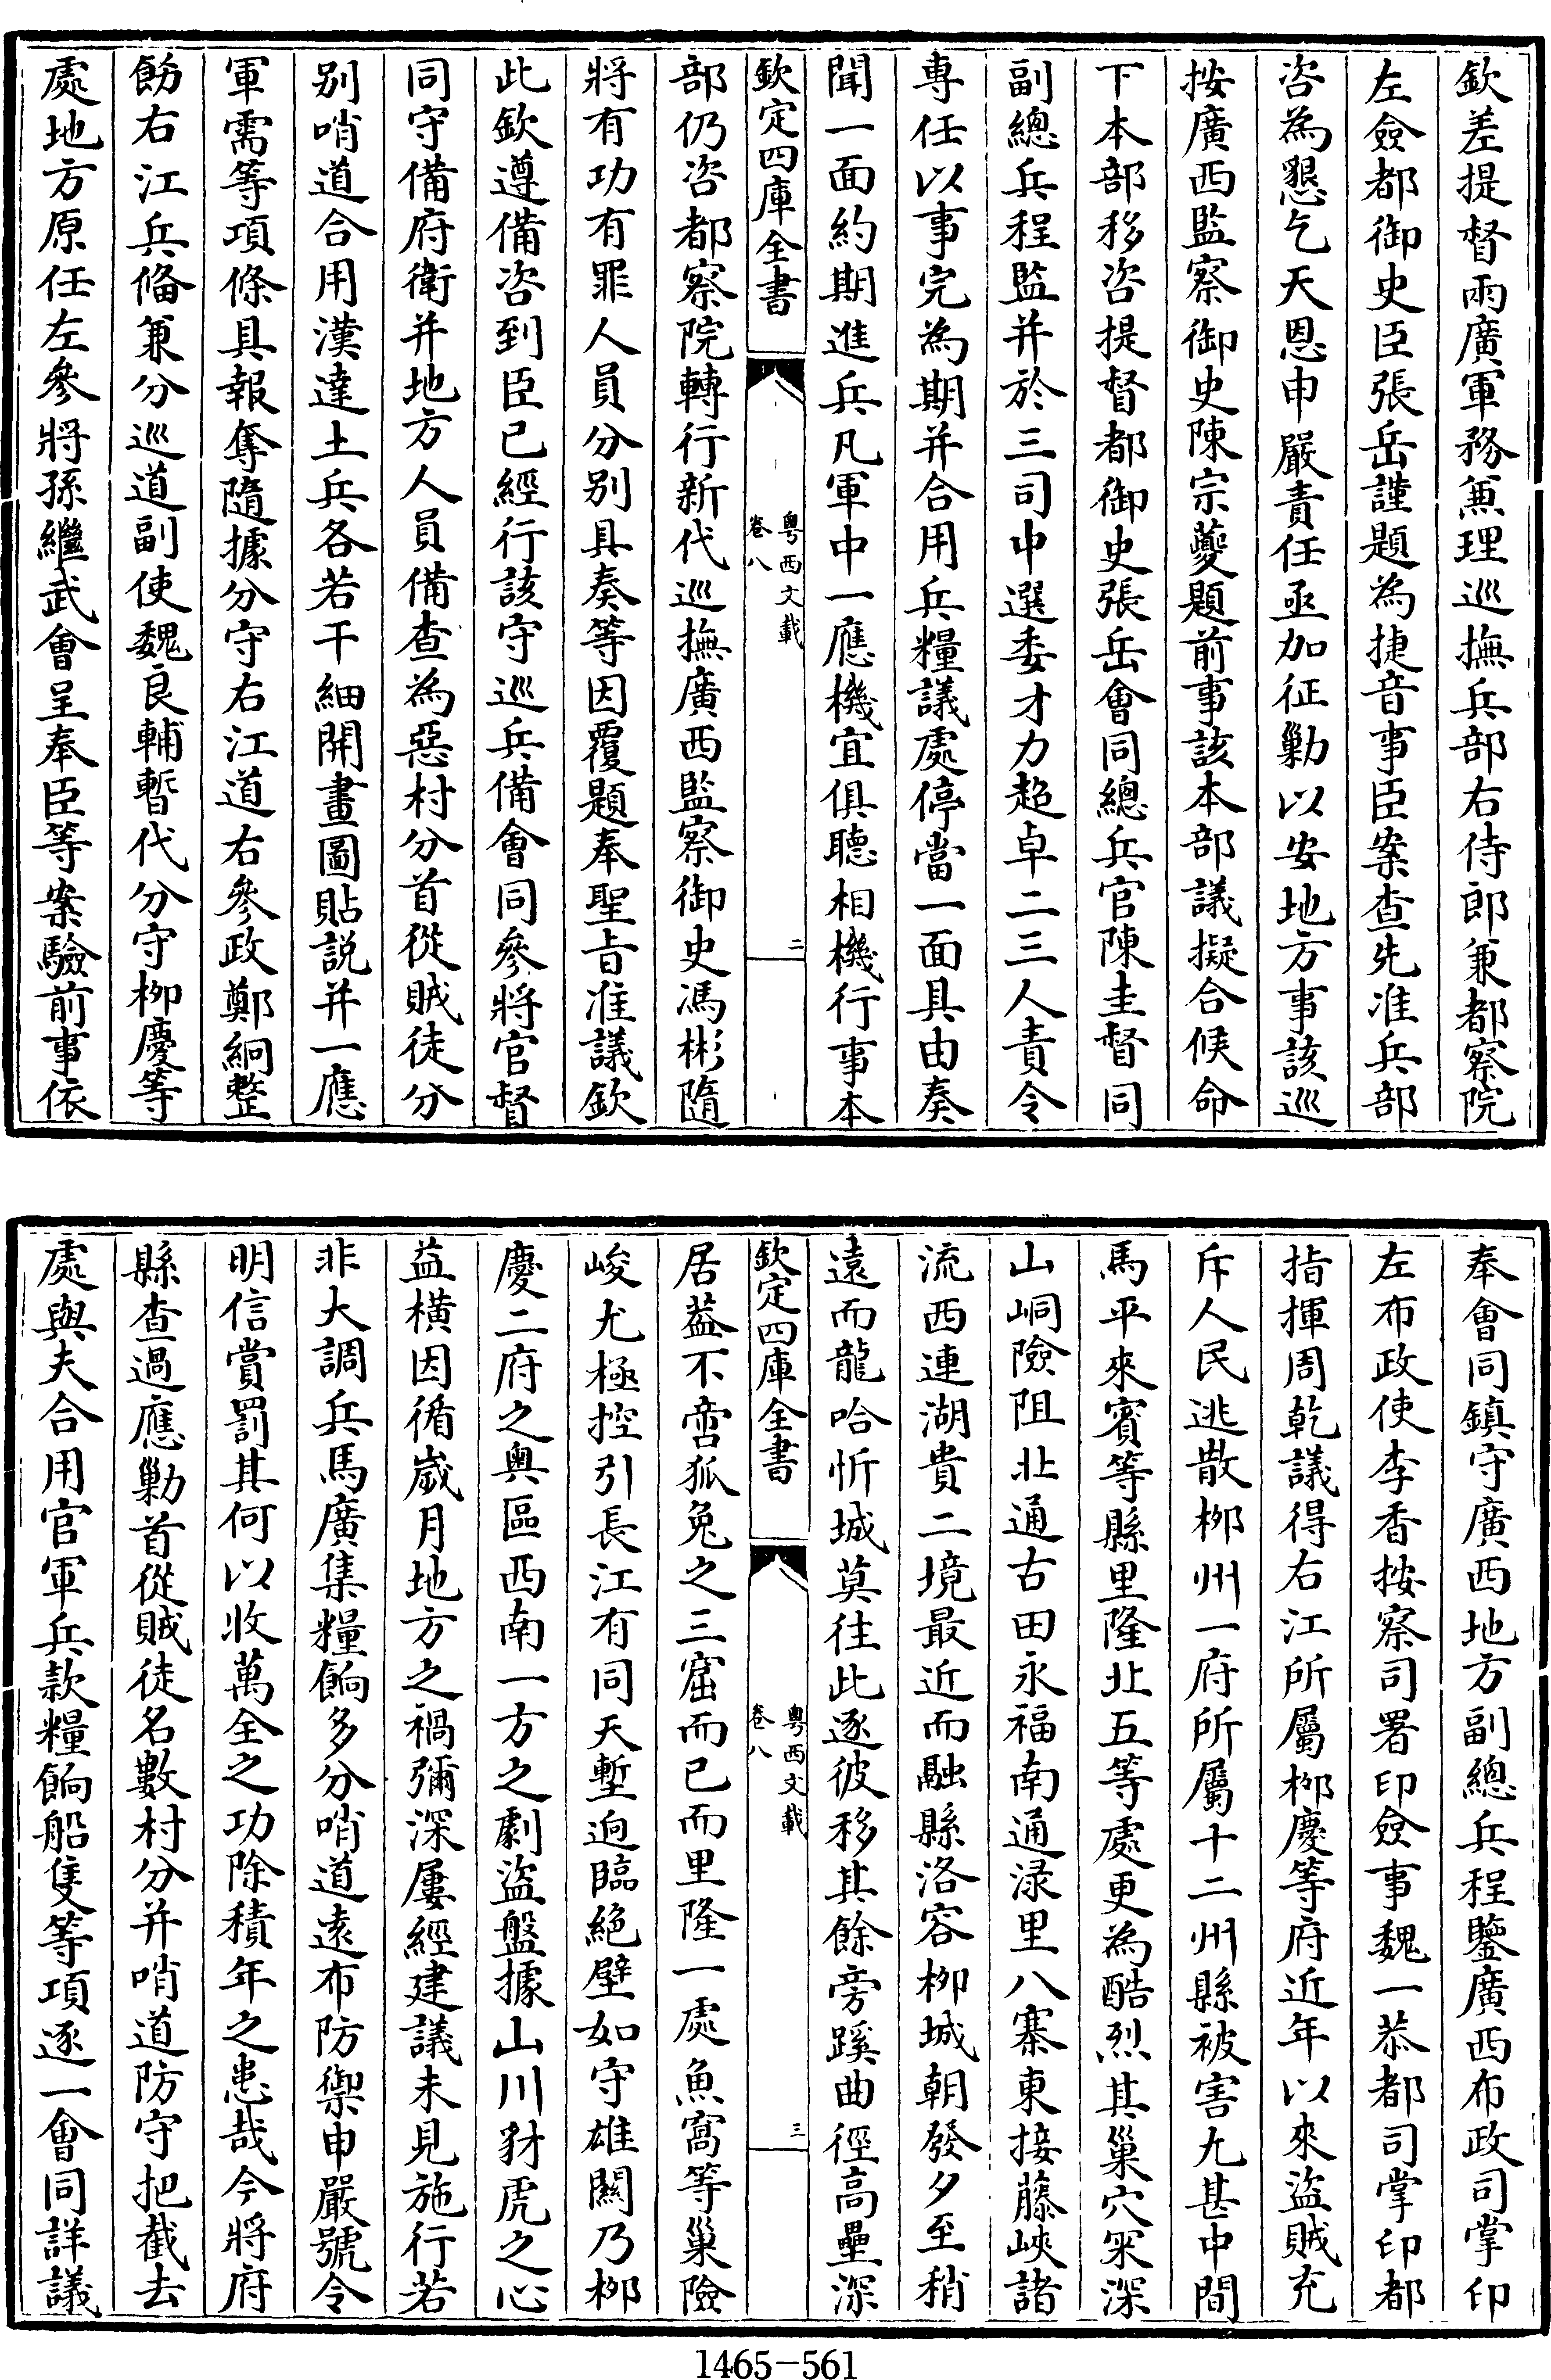 欽差提督兩廣軍務兼理巡撫兵部右侍郎兼都察院
左僉都御史臣張岳謹題為捷音事臣案查先准兵部
咨為懇乞天恩申嚴責任亟加征勦以安地方事該巡
按廣西監察御史陳宗夔題前事該本部議擬合候命
下本部移咨提督都御史張岳會同總兵官陳圭督同
副總兵程監并於三司中選委才力超卓二三人責令
專任以事完為期并合用兵糧議處停當一面具由奏
聞一面約期進兵凡軍中一應機宜俱聽相機行事本
欽定四庫全書
粤西文載
卷八
二
部仍咨都察院轉行新代巡撫廣西監察御史馮彬隨
將有功有罪人員分别具奏等因覆題奉聖旨准議欽
此欽遵備咨到臣已經行該守巡兵備會同參將官督
同守備府衛并地方人員備查為惡村分首從賊徒分
别哨道合用漢達土兵各若干細開畫圖貼説并一應
軍需等項條具報奪隨據分守右江道右參政鄭絅整
飭右江兵備兼分巡道副使魏良輔暫代分守柳慶等
處地方原任左參將孫繼武會呈奉臣等案驗前事依
奉會同鎮守廣西地方副總兵程鑒廣西布政司掌印
左布政使李香按察司署印僉事魏一恭都司掌印都
指揮周乾議得右江所屬柳慶等府近年以來盜賊充
斥人民逃散柳州一府所屬十二州縣被害尤甚中間
馬平來賓等縣里隆北五等處更為酷烈其巢穴罙深
山峒險阻北通古田永福南通渌里八寨東接藤峽諸
流西連湖貴二境最近而融縣洛容柳城朝發夕至稍
遠而龍哈忻城莫往此逐彼移其餘旁蹊曲徑高壘深
欽定四庫全書
粤西文載
卷八
三
居葢不啻狐兔之三窟而已而里隆一處魚窩等巢險
峻尤極控引長江有同天塹逈臨絶壁如守雄關乃柳
慶二府之奥區西南一方之劇盜盤據山川豺虎之心
益橫因循歲月地方之禍彌深屢經建議未見施行若
非大調兵馬廣集糧餉多分哨道逺布防禦申嚴號令
明信賞罰其何以收萬全之功除積年之患哉今將府
縣查過應勦首從賊徒名數村分并哨道防守把截去
處與夫合用官軍兵款糧餉船隻等項逐一會同詳議
1465-561